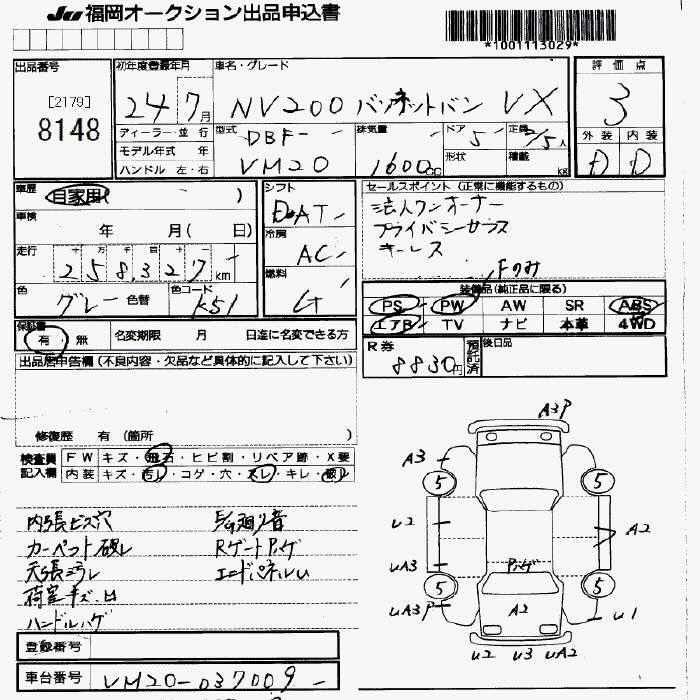 JU 福岡オークション出品申込書
*1001113029*
出品番号
[2179]
8148
初年度登録年月
24 7月
ディーラー・並 行
モデル年式 年
ハンドル 左・右
車名・グレード
NV200 バネットバン VX
型式
DBF-
VM20
排気量
1600cc
ドア 5
形状
定員 2/5人
積載 kg
評 価 点
3
外 装 内 装
D D
車歴 自家用 ( )
車検 年 月( 日)
走行 十 万 千 百 十 一
258,327 km
色 グレー 色替
色コード K51
シフト
DAT
冷房
AC
燃料
G
セールスポイント (正常に機能するもの)
法人ワンオーナー
プライバシーガラス
キーレス
Fのみ
装備品(純正品に限る)
PS PW AW SR ABS
エアB TV ナビ 本革 4WD
保証書
有・無 名変期限 月 日迄に名変できる方
R券 8830円
預託済
後日品
出品店申告欄(不良内容・欠品など具体的に記入して下さい)
修復歴 有 (箇所 )
検査員記入欄
FW キズ・飛石・ヒビ割・リペア跡・X要
内装 キズ・汚レ・コゲ・穴・スレ・キレ・破レ
内張ビス穴
カーペット破レ
天張ヨゴレ
荷室キズ・凹
ハンドルハゲ
Rゲートハゲ
エンドパネルU
登録番号
車台番号 VM20-037009
A3P
A3
5 5
U2
A2
UA3
ハゲ
5 5
UA3P
A2
U1
U2 U3 UA2